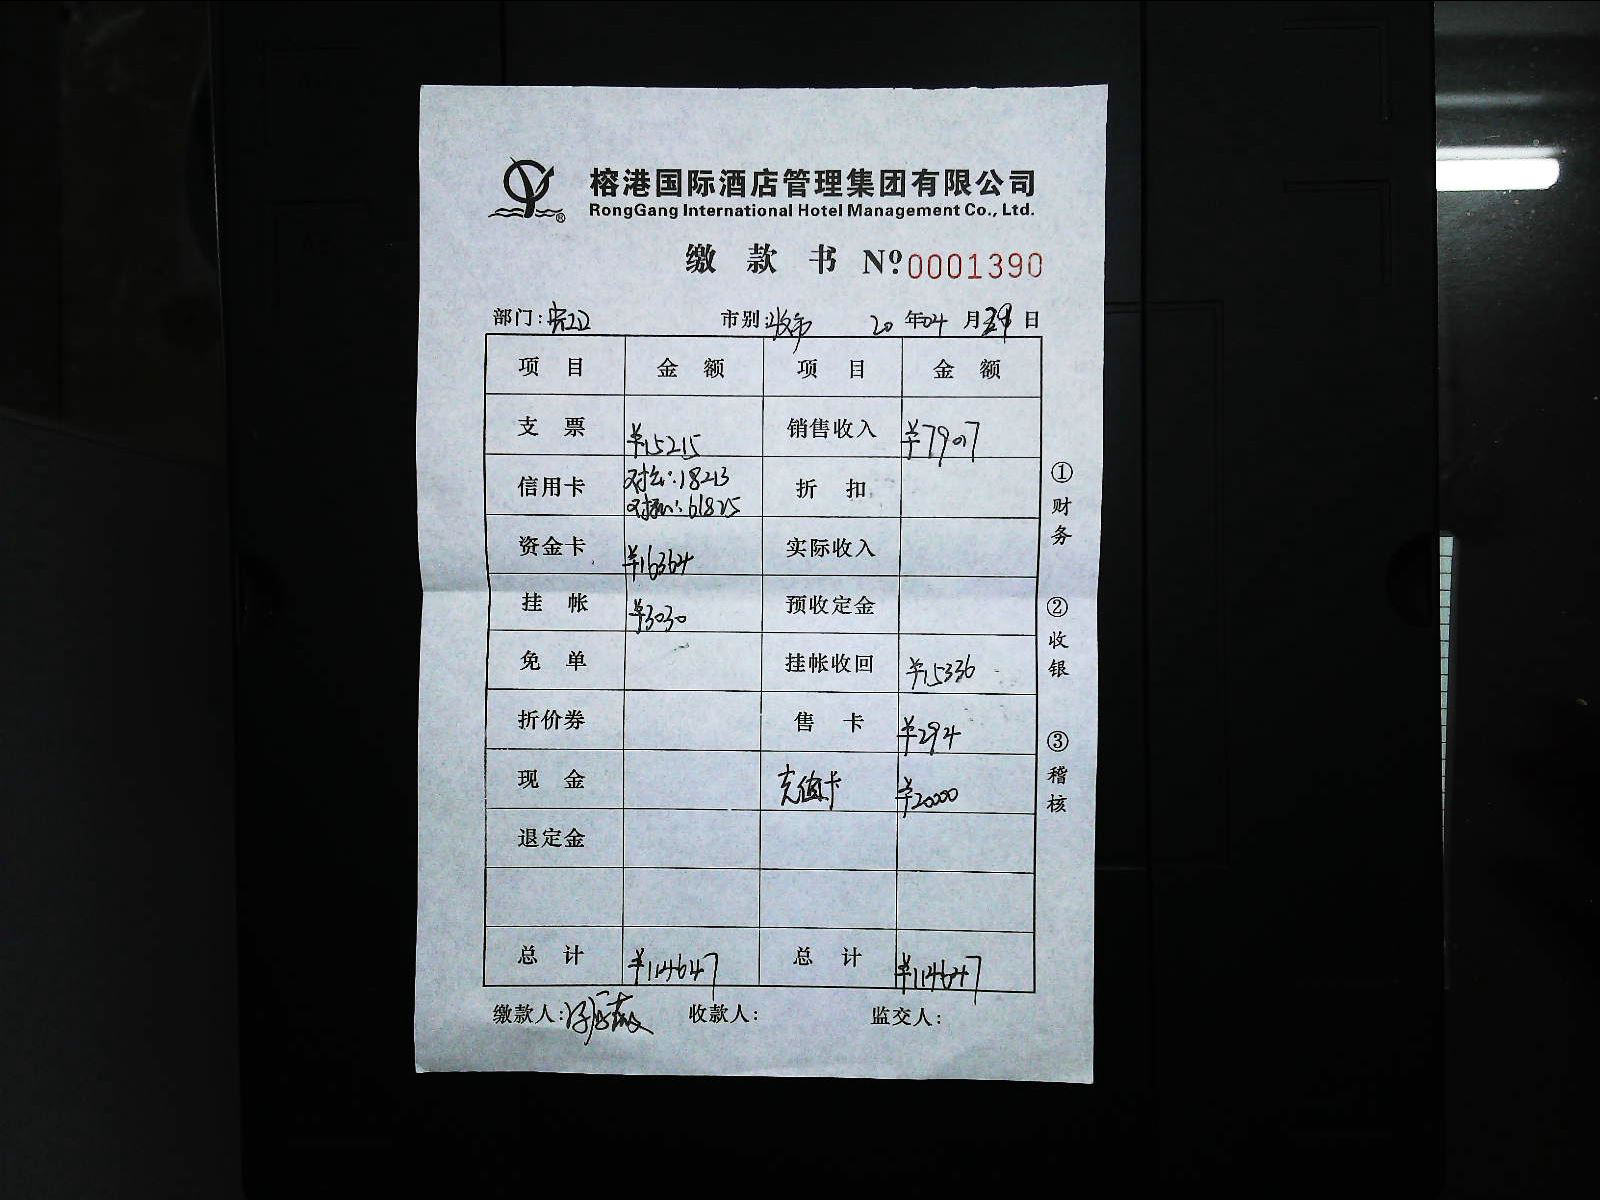 榕港国际酒店管理集团有限公司
RongGang International Hotel Management Co., Ltd.
缴款书 Nº 0001390
部门: 市别 收市 20 年 04 月 29 日
项目 金额 项目 金额
支票 ¥15215 销售收入 ¥79017
信用卡 对公:18213 折扣
对私:61825
资金卡 ¥16364 实际收入
挂帐 ¥3030 预收定金
免单 挂帐收回 ¥15336
折价券 售卡 ¥294
现金 充值卡 ¥20000
退定金
总计 ¥114647 总计 ¥114647
缴款人: 收款人: 监交人:
①财务
②收银
③稽核